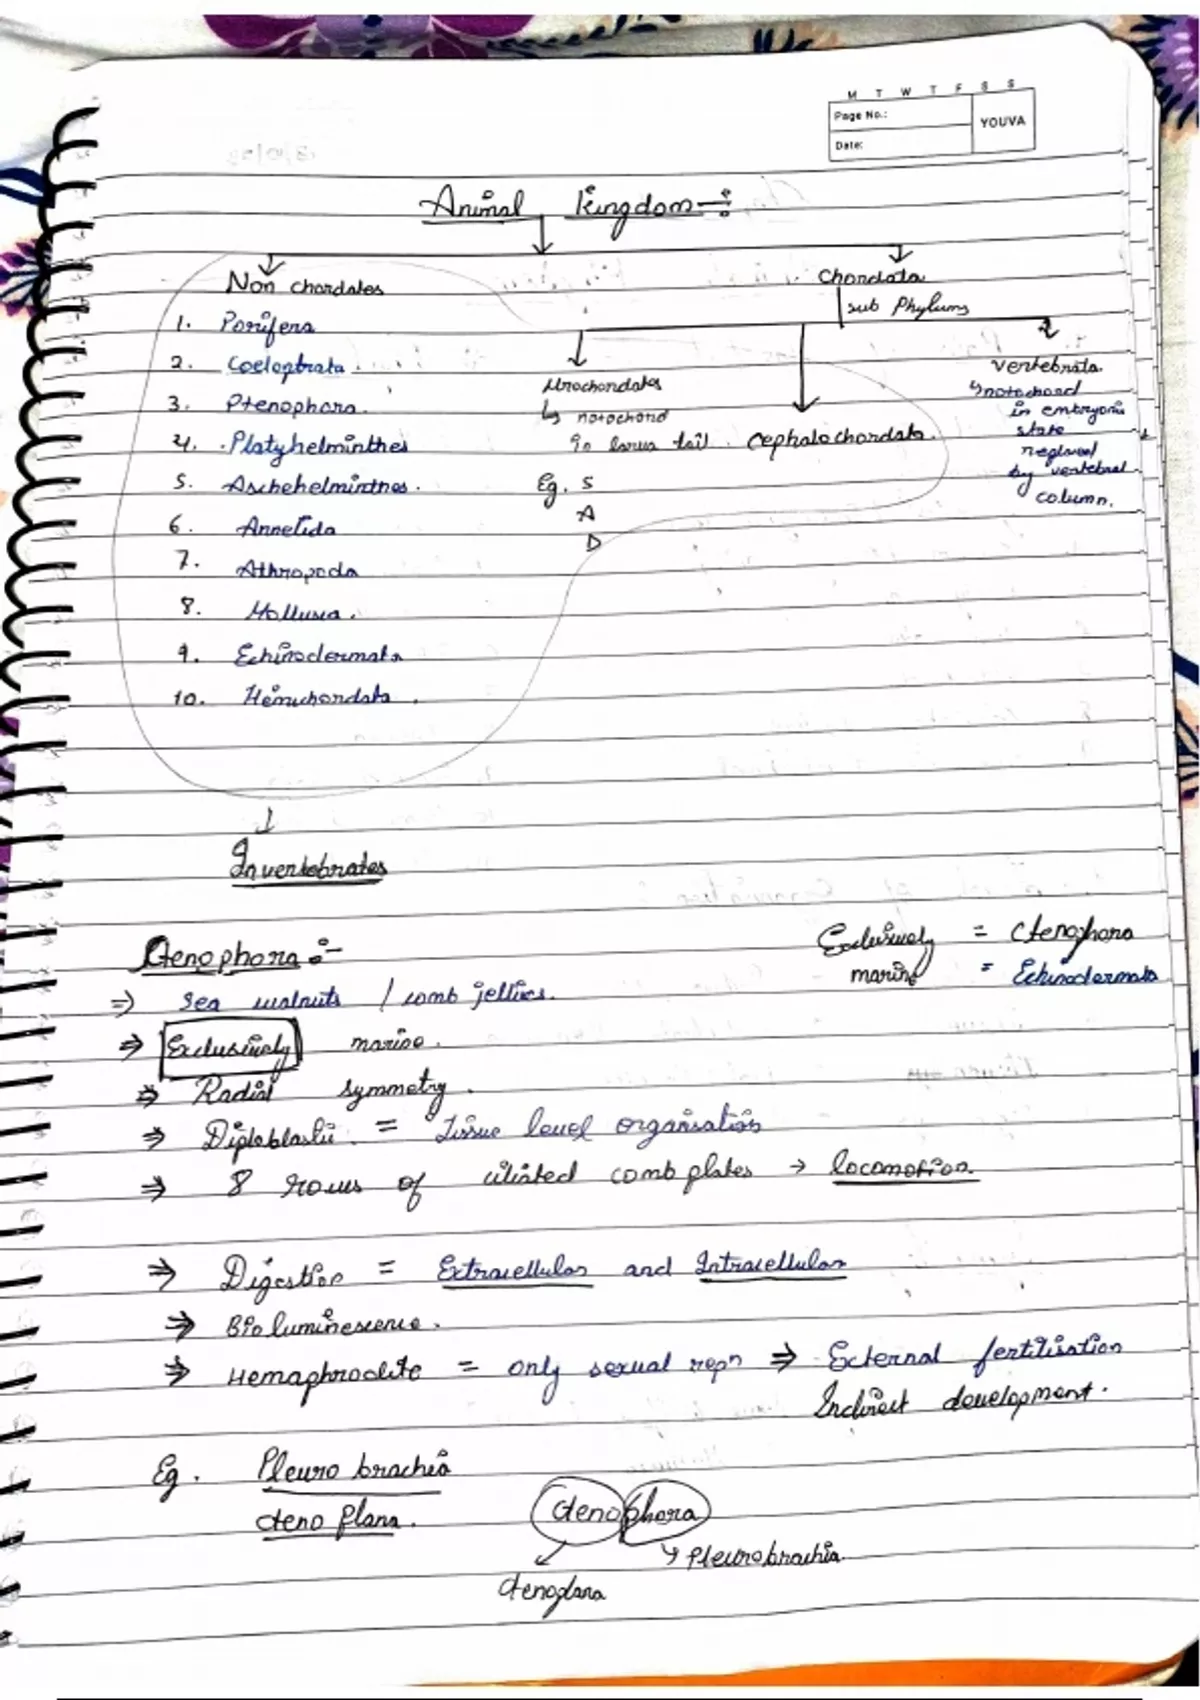 M T W T F S S
Page No.:
YOUVA
Date:
Animal Kingdom :-
Non chordates
Chordata
sub Phylums
1. Porifera
2. Coeloptrata
3. Ptenophora
4. Platyhelminthes
5. Aschehelminthes
6. Annelida
7. Athropoda
8. Mollusca
9. Echinodermata
10. Hemichordata
Urochordates
↳ notochord
in larva tail
Eg. S
A
D
Cephalochordata
Vertebrata
↳ notochord
in embryonic
state
replaced
by vertebral
column.
Invertebrates
Ctenophora :-
Exclusively = Ctenophora
marine = Echinodermata
⇒ Sea walnuts / comb jellies.
⇒ Exclusively marine.
⇒ Radial symmetry.
⇒ Diploblastic = Tissue level organisation
⇒ 8 rows of ciliated comb plates → locomotion
⇒ Digestion = Extracellular and Intracellular
⇒ Bioluminescence.
⇒ Hemaphrodite = only sexual repn ⇒ External fertilisation
Indirect development.
Eg. Pleurobrachia
cteno plana.
ctenophora
Pleurobrachia
ctenoplana